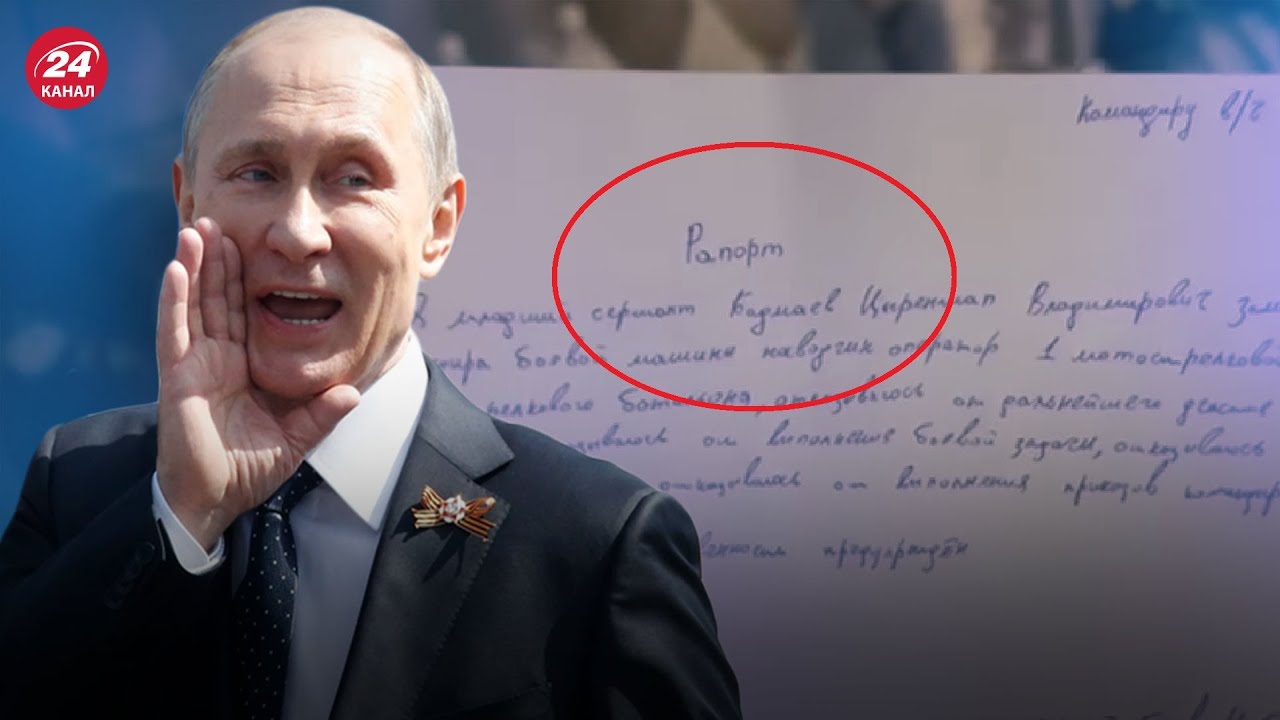 24
КАНАЛ
Командиру в/ч
Рапорт
младший сержант Бадмаев Цыренжап Владимирович зам
боевой машины наводчик оператор 1 мотострелково
батальона, отказываюсь от дальнейшего
от выполнения боевой задачи, отказываюсь
отказываюсь от выполнения приказов командир
предупреждён